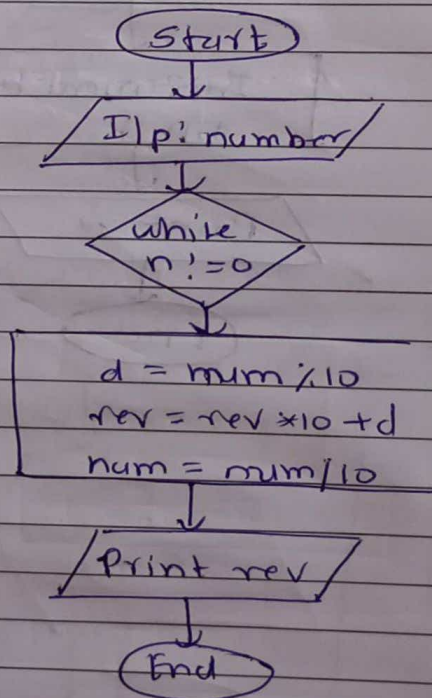 Start
I/p: number
while
n!=0
d = num % 10
rev = rev *10 +d
num = num/10
Print rev
End